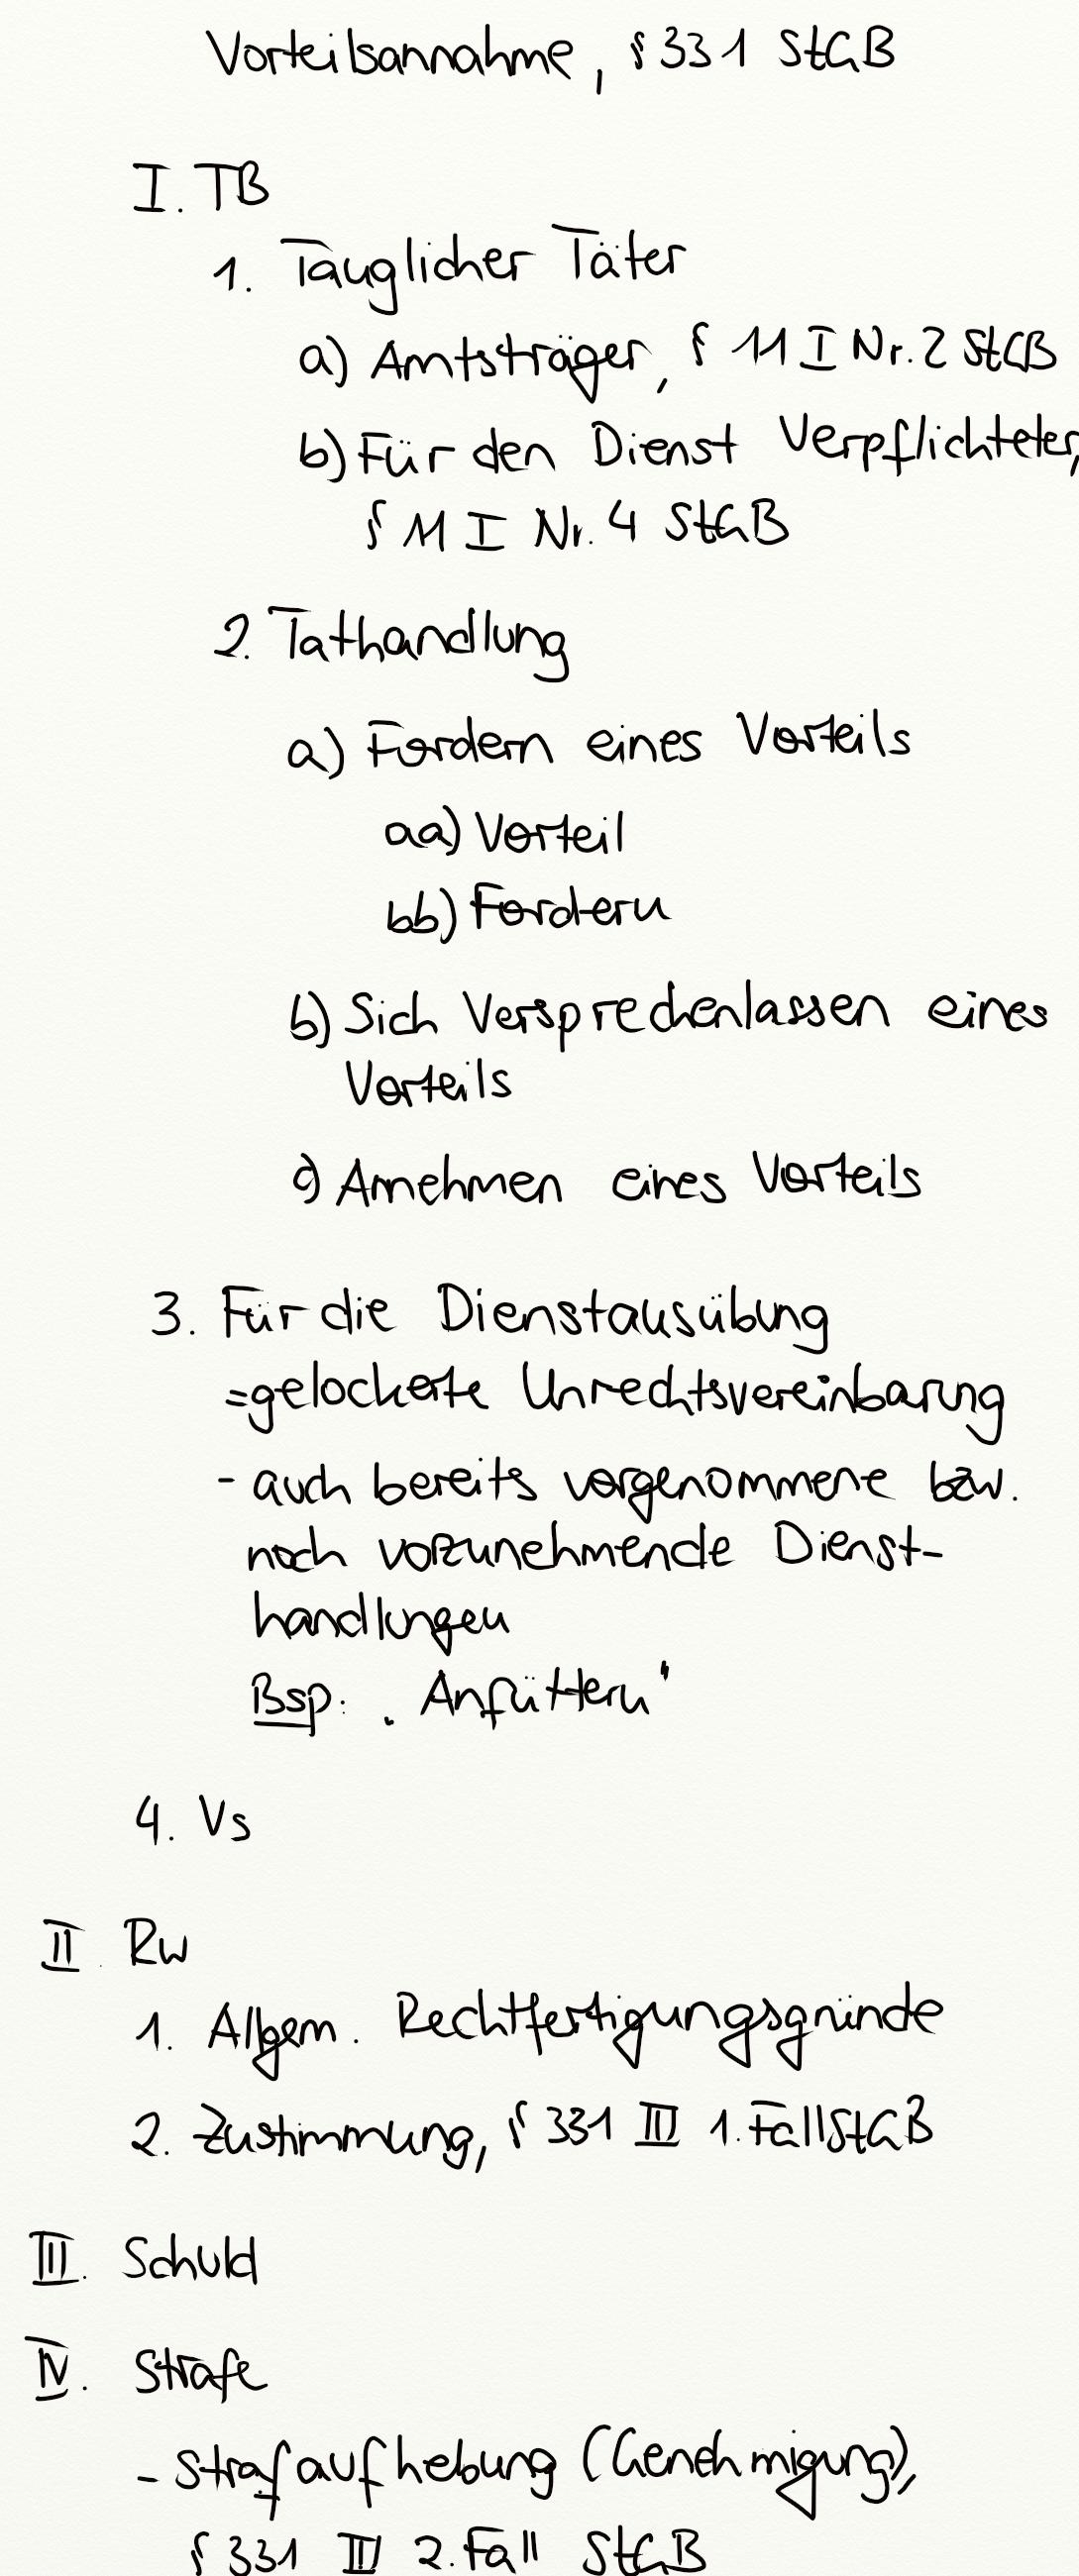 Vorteilsannahme, § 331 StGB
I. TB
1. Tauglicher Täter
a) Amtsträger, § 11 I Nr. 2 StGB
b) Für den Dienst Verpflichteter,
§ 11 I Nr. 4 StGB
2. Tathandlung
a) Fordern eines Vorteils
aa) Vorteil
bb) Fordern
b) Sich Versprechenlassen eines
Vorteils
c) Annehmen eines Vorteils
3. Für die Dienstausübung
= gelockerte Unrechtsvereinbarung
- auch bereits vorgenommene bzw.
noch vorzunehmende Dienst-
handlungen
Bsp: "Anfüttern"
4. Vs
II. Rw
1. Allgem. Rechtfertigungsgründe
2. Zustimmung, § 331 III 1. Fall StGB
III. Schuld
IV. Strafe
- Strafaufhebung (Genehmigung),
§ 331 III 2. Fall StGB